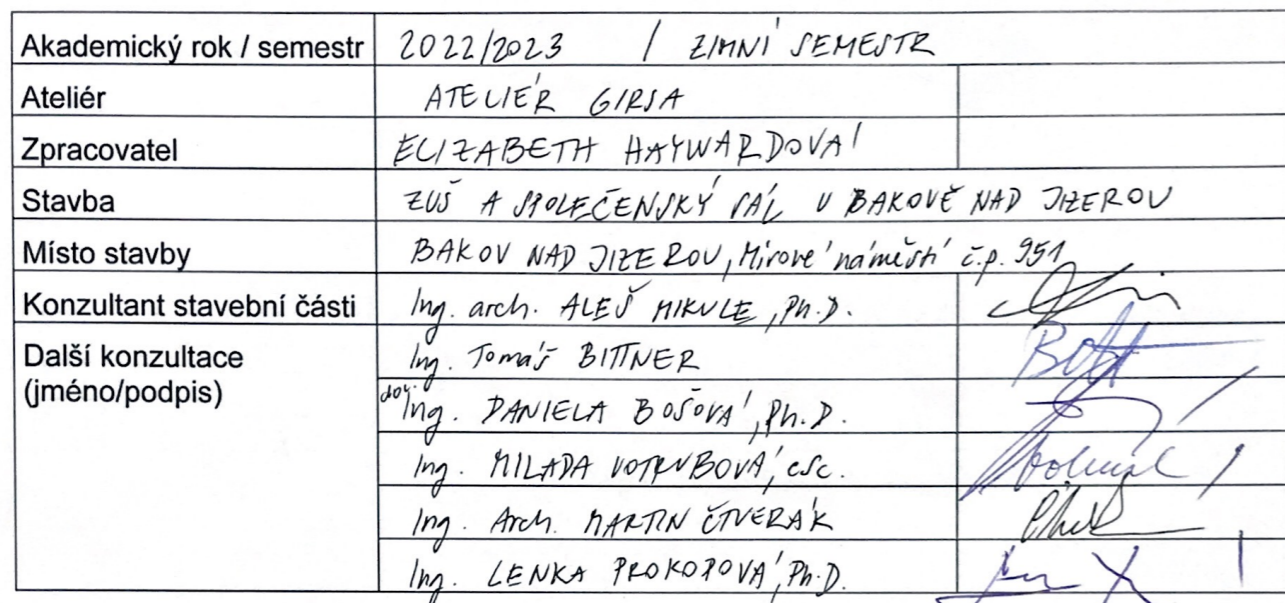 Akademický rok / semestr 2022/2023 / ZIMNÍ SEMESTR
Ateliér ATELIÉR GIRSA
Zpracovatel ELIZABETH HAYWARDOVÁ
Stavba ZUŠ A SPOLEČENSKÝ SÁL V BAKOVĚ NAD JIZEROU
Místo stavby BAKOV NAD JIZEROU, Mírové náměstí č.p. 951
Konzultant stavební části Ing. arch. ALEŠ MIKULE, Ph.D.
Další konzultace Ing. Tomáš BITTNER
(jméno/podpis) doc. Ing. DANIELA BOŠOVÁ, Ph.D.
Ing. MILADA VOTRUBOVÁ, CSc.
Ing. Arch. MARTIN ČTVERÁK
Ing. LENKA PROKOPOVÁ, Ph.D.